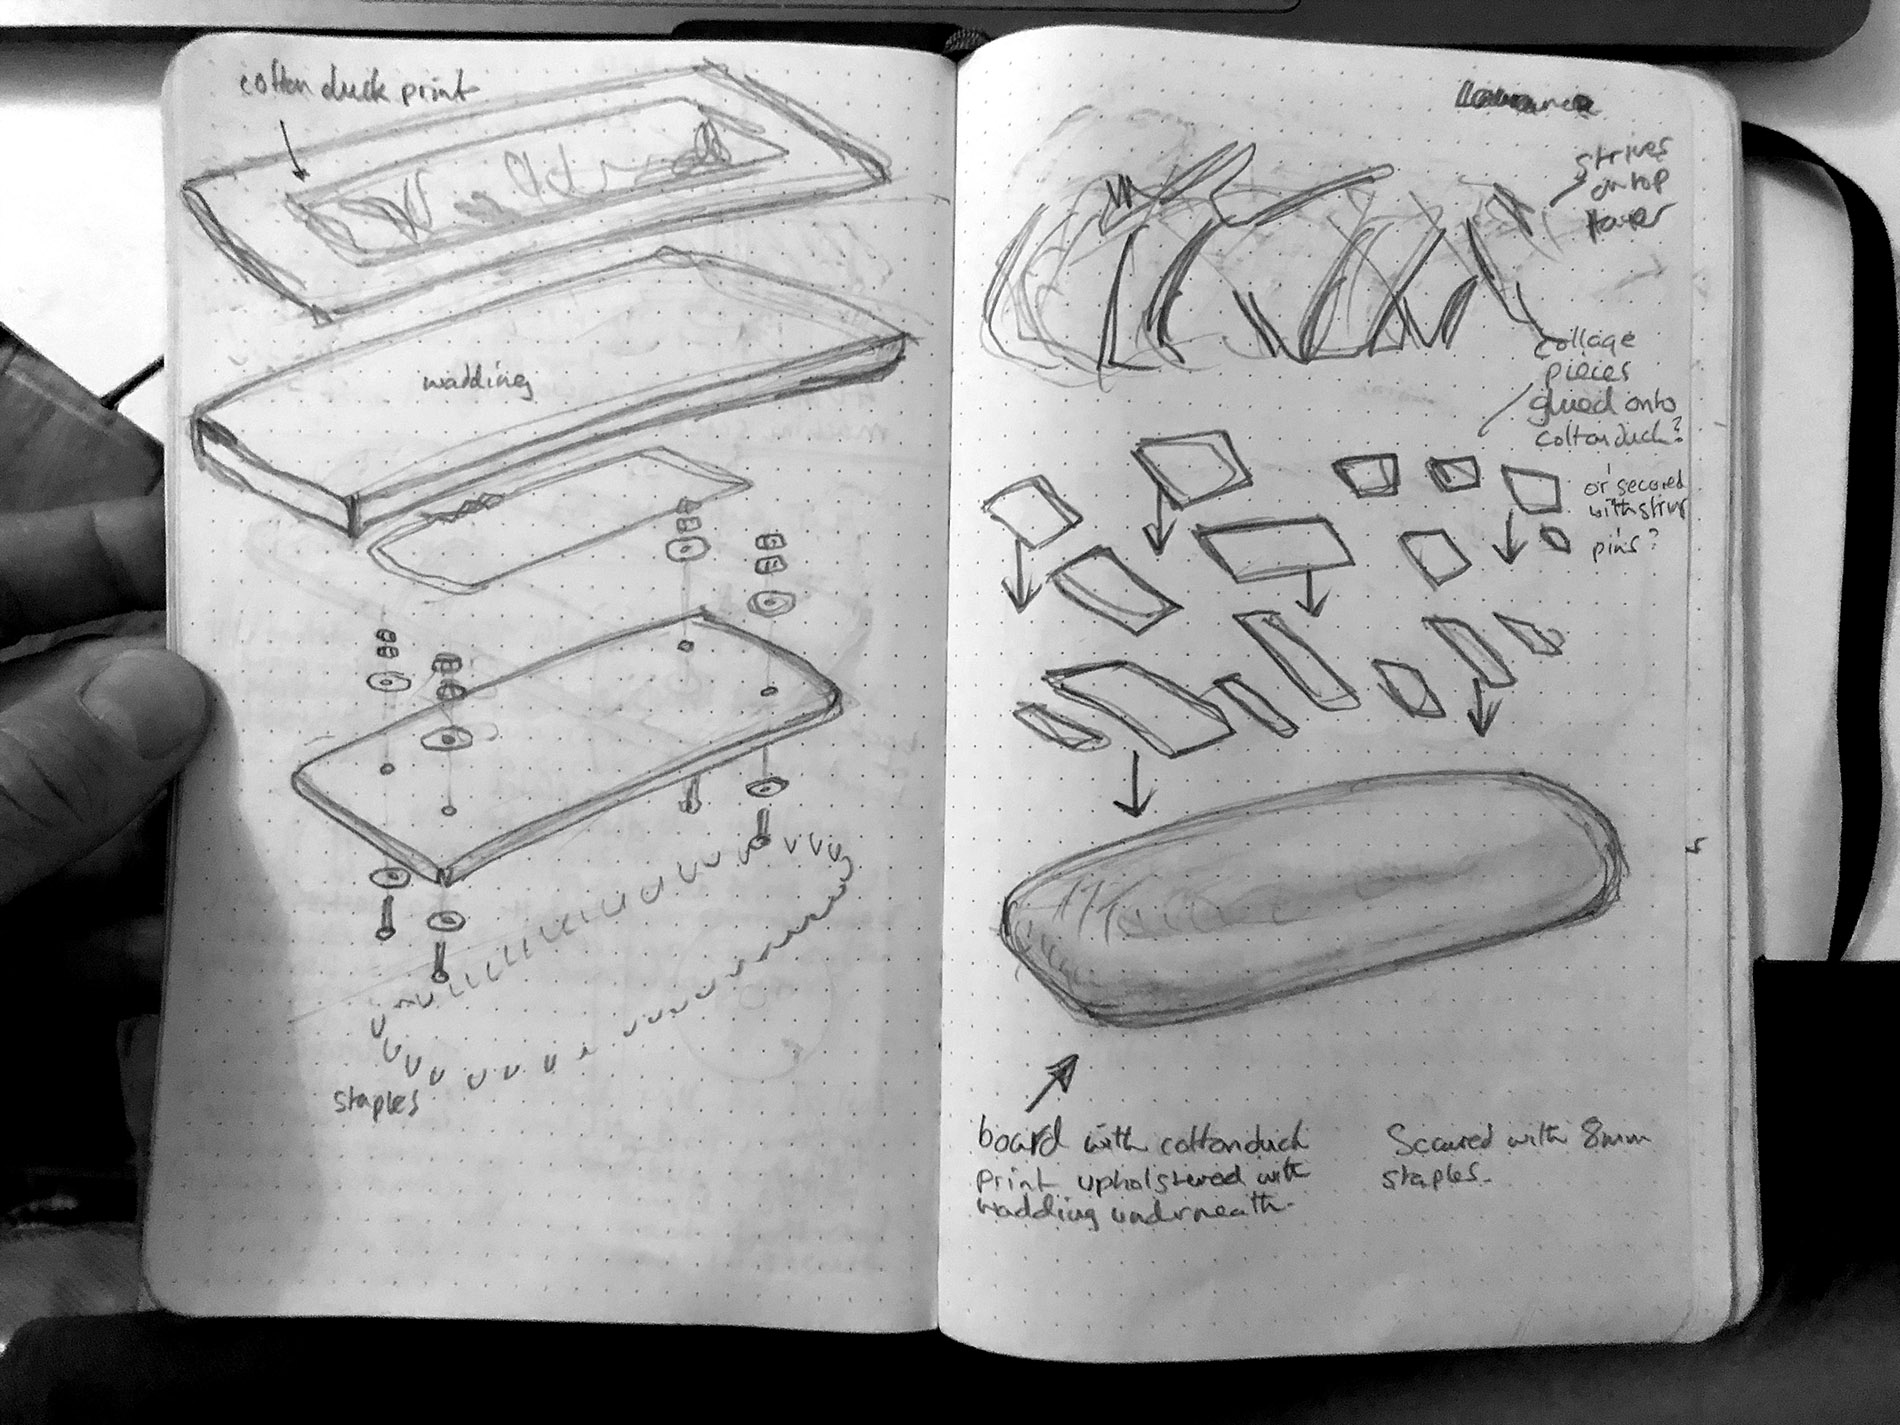 cotton duck print
wadding
staples
on top
collage
pieces
glued onto
cotton duck?
or secured
with string
pins?
board with cotton duck
print upholstered with
wadding underneath.
Secured with 8mm
staples.